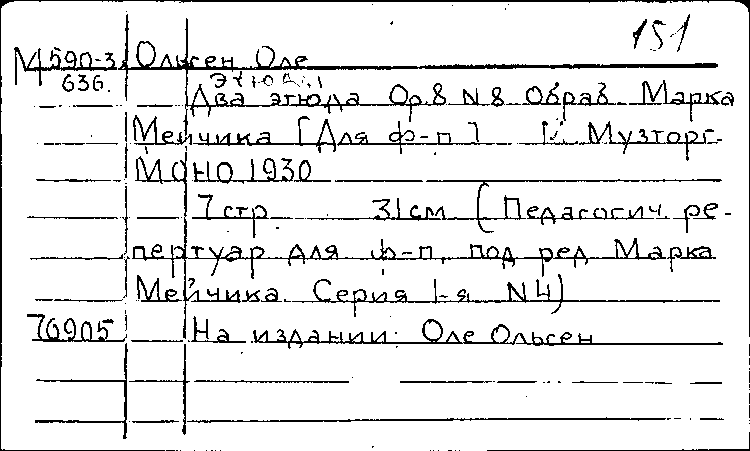 151
М 590-3 Ольсен Оле
636. Этюды
Два этюда Op.8 N8 Обраб Марка
Мейчика [Для ф-п] М. Музторг-
МОНО 1930
7 стр 31 см (Педагогич. ре-
пертуар для ф-п, под ред Марка
Мейчика. Серия 1-я N4)
70905 На издании: Оле Ольсен